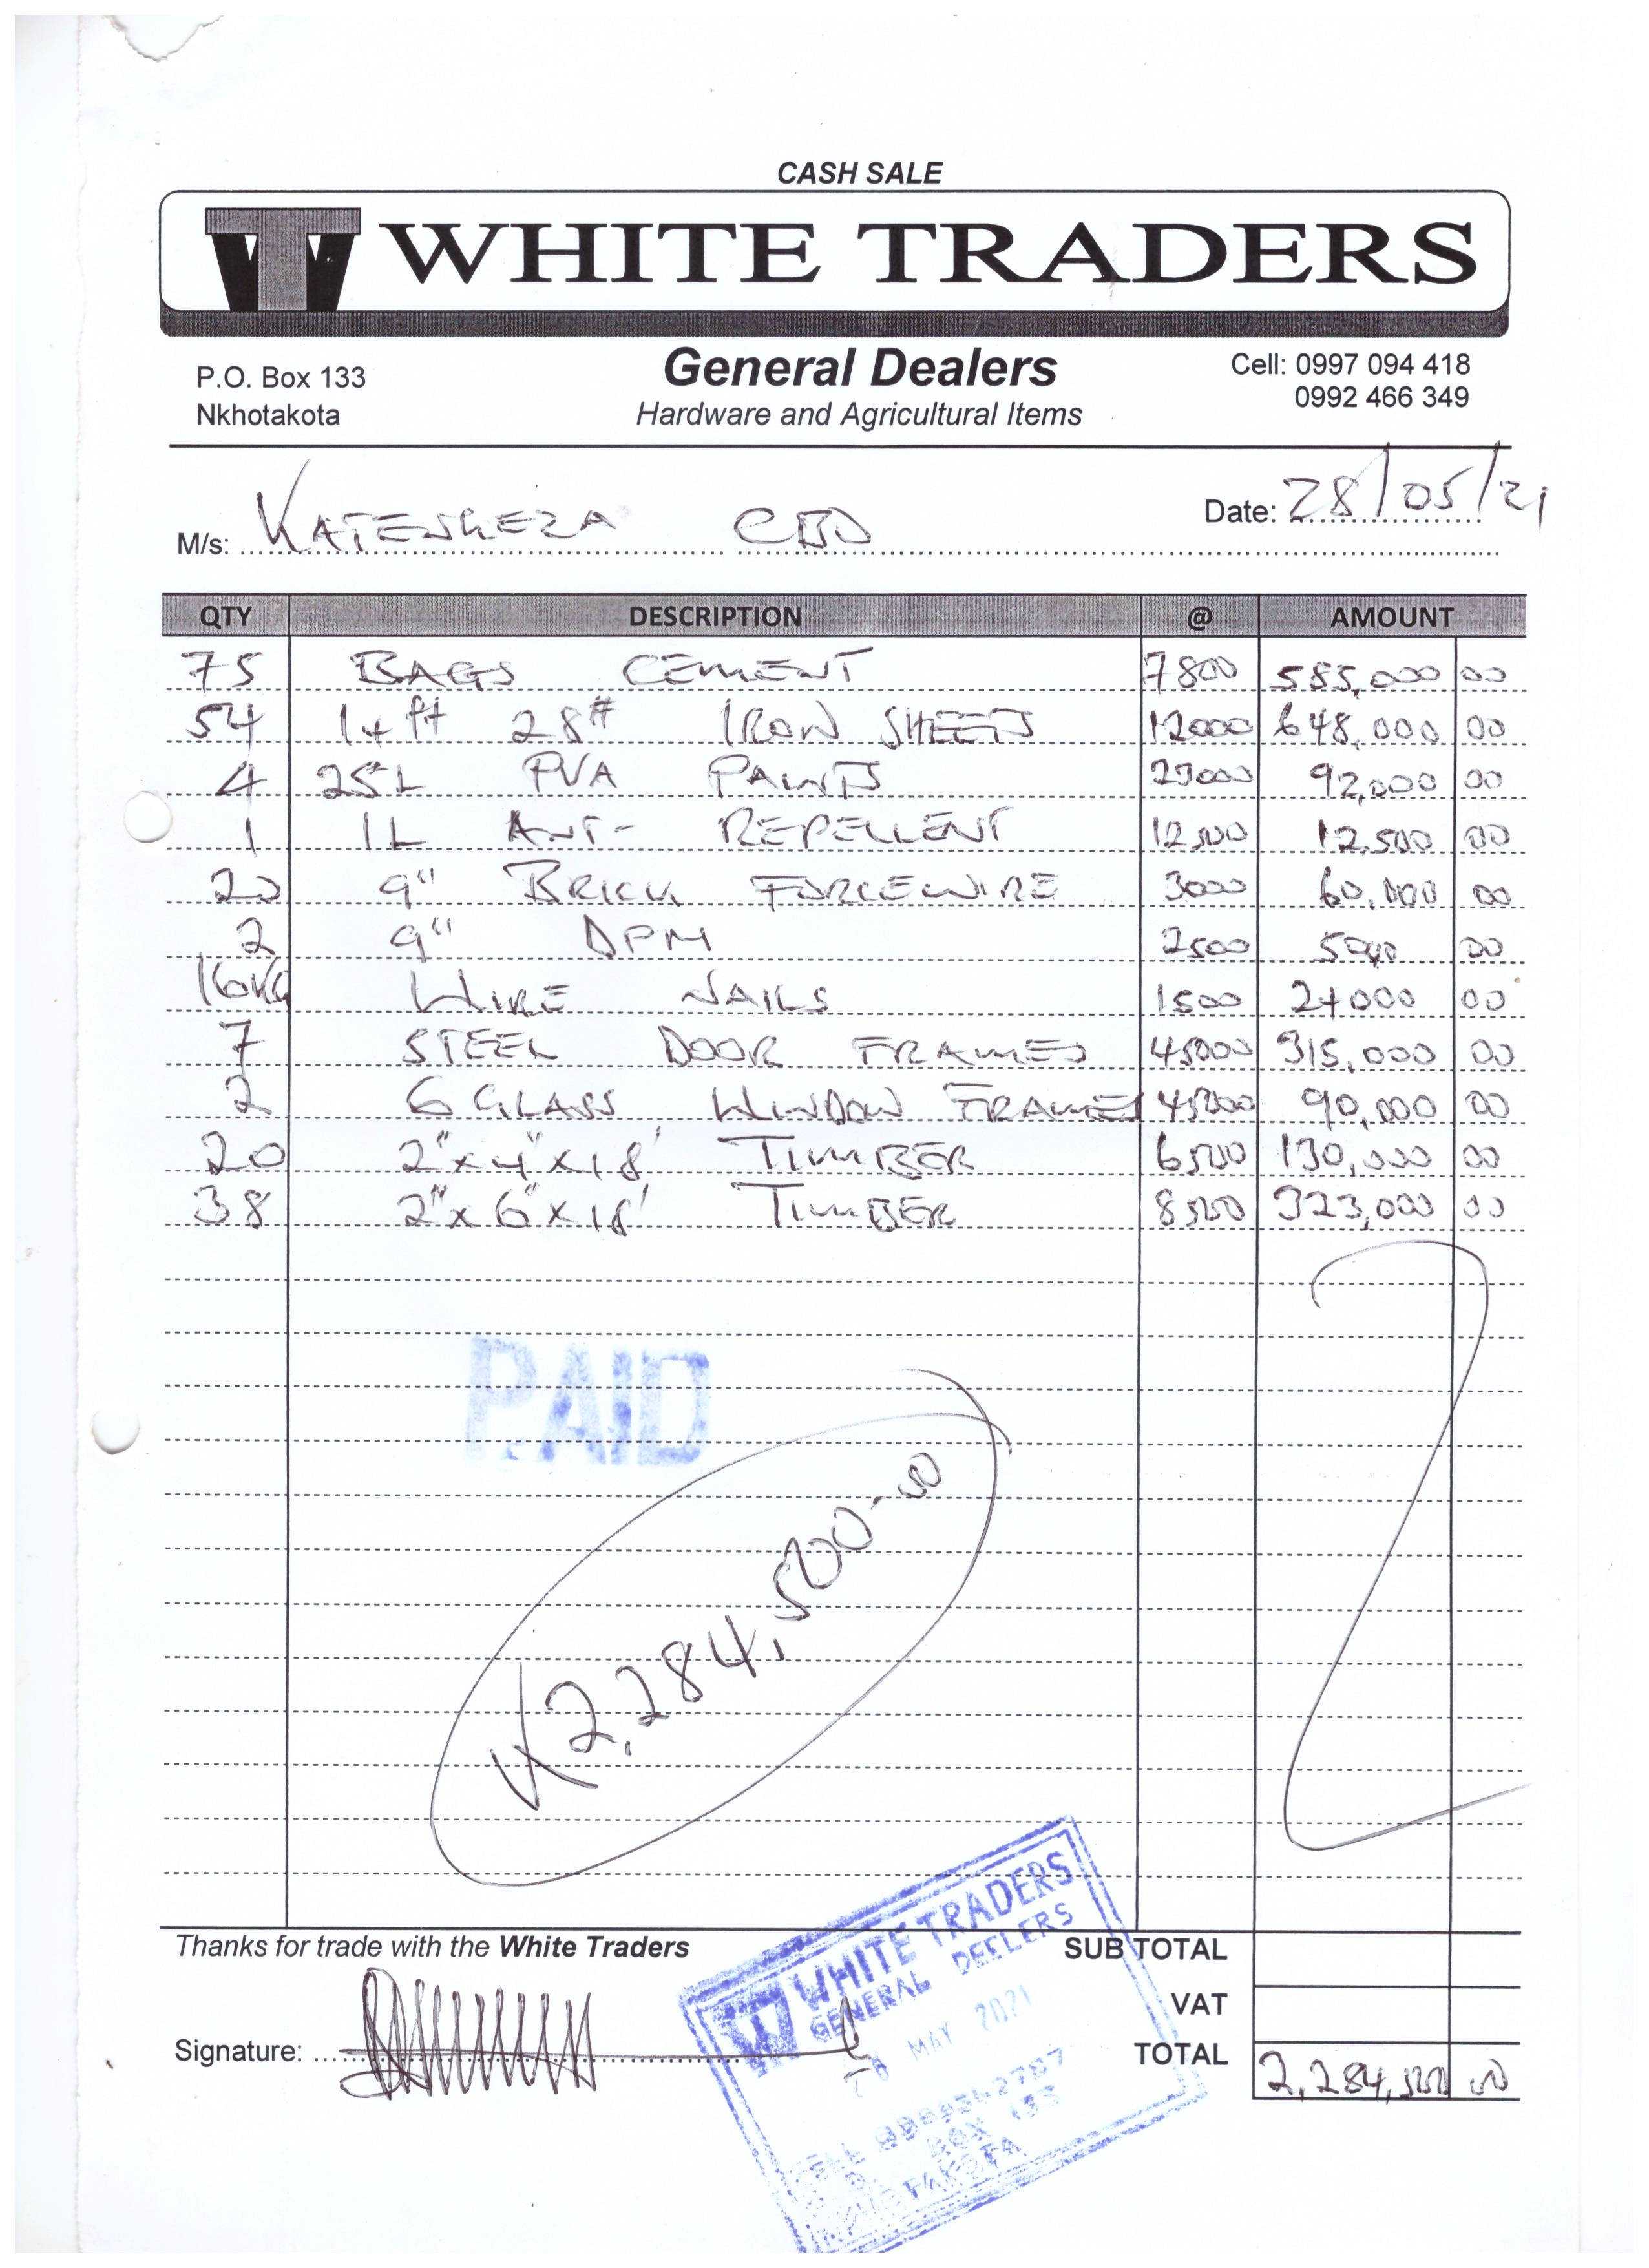 CASH SALE
WHITE TRADERS
P.O. Box 133
Nkhotakota
General Dealers
Hardware and Agricultural Items
Cell: 0997 094 418
0992 466 349
M/s: KATENGEZA CBO
Date: 28/05/21
QTY DESCRIPTION @ AMOUNT
75 BAGS CEMENT 7800 585,000 00
54 14ft 28# IRON SHEETS 12000 648,000 00
4 25L PVA PAINTS 23000 92,000 00
1 1L ANT- REPELLENT 12500 12,500 00
20 9" BRICK FORCEWIRE 3000 60,000 00
2 9" DPM 2500 5000 00
16KG WIRE NAILS 1500 24000 00
7 STEEL DOOR FRAMES 45000 315,000 00
2 6 GLASS WINDOW FRAMES 45000 90,000 00
20 2"x4"x18' TIMBER 6500 130,000 00
38 2"x6"x18' TIMBER 8500 323,000 00
PAID
K2,284,500-00
Thanks for trade with the White Traders
Signature:
WHITE TRADERS
GENERAL DEELERS
28 MAY 2021
BOX 133
SUB TOTAL
VAT
TOTAL 2,284,500 00